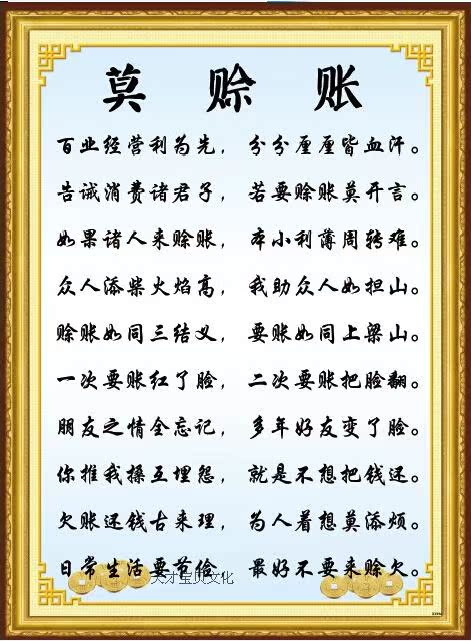 莫赊账
百业经营利为先，分分厘厘皆血汗。
告诫消费诸君子，若要赊账莫开言。
如果诸人来赊账，本小利薄周转难。
众人添柴火焰高，我助众人如担山。
赊账如同三结义，要账如同上梁山。
一次要账红了脸，二次要账把脸翻。
朋友之情全忘记，多年好友变了脸。
你推我搡互埋怨，就是不想把钱还。
欠账还钱古来理，为人着想莫添烦。
日常生活要节俭，最好不要来赊欠。
天才宝贝文化